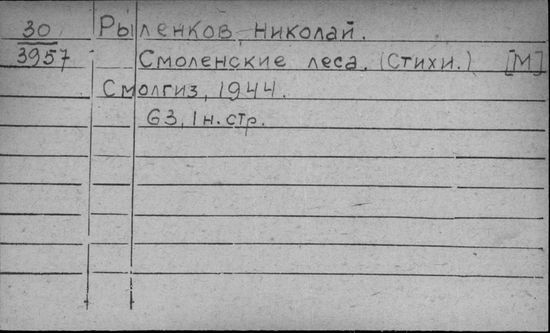 30 Рыленков, Николай.
3957 Смоленские леса. (Стихи.) [М]
Смолгиз, 1944.
63, 1 н. стр.